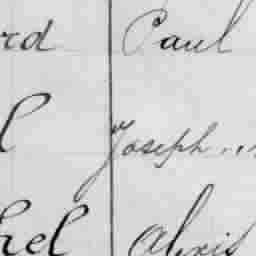 rd Paul
l Joseph
hel Alexis